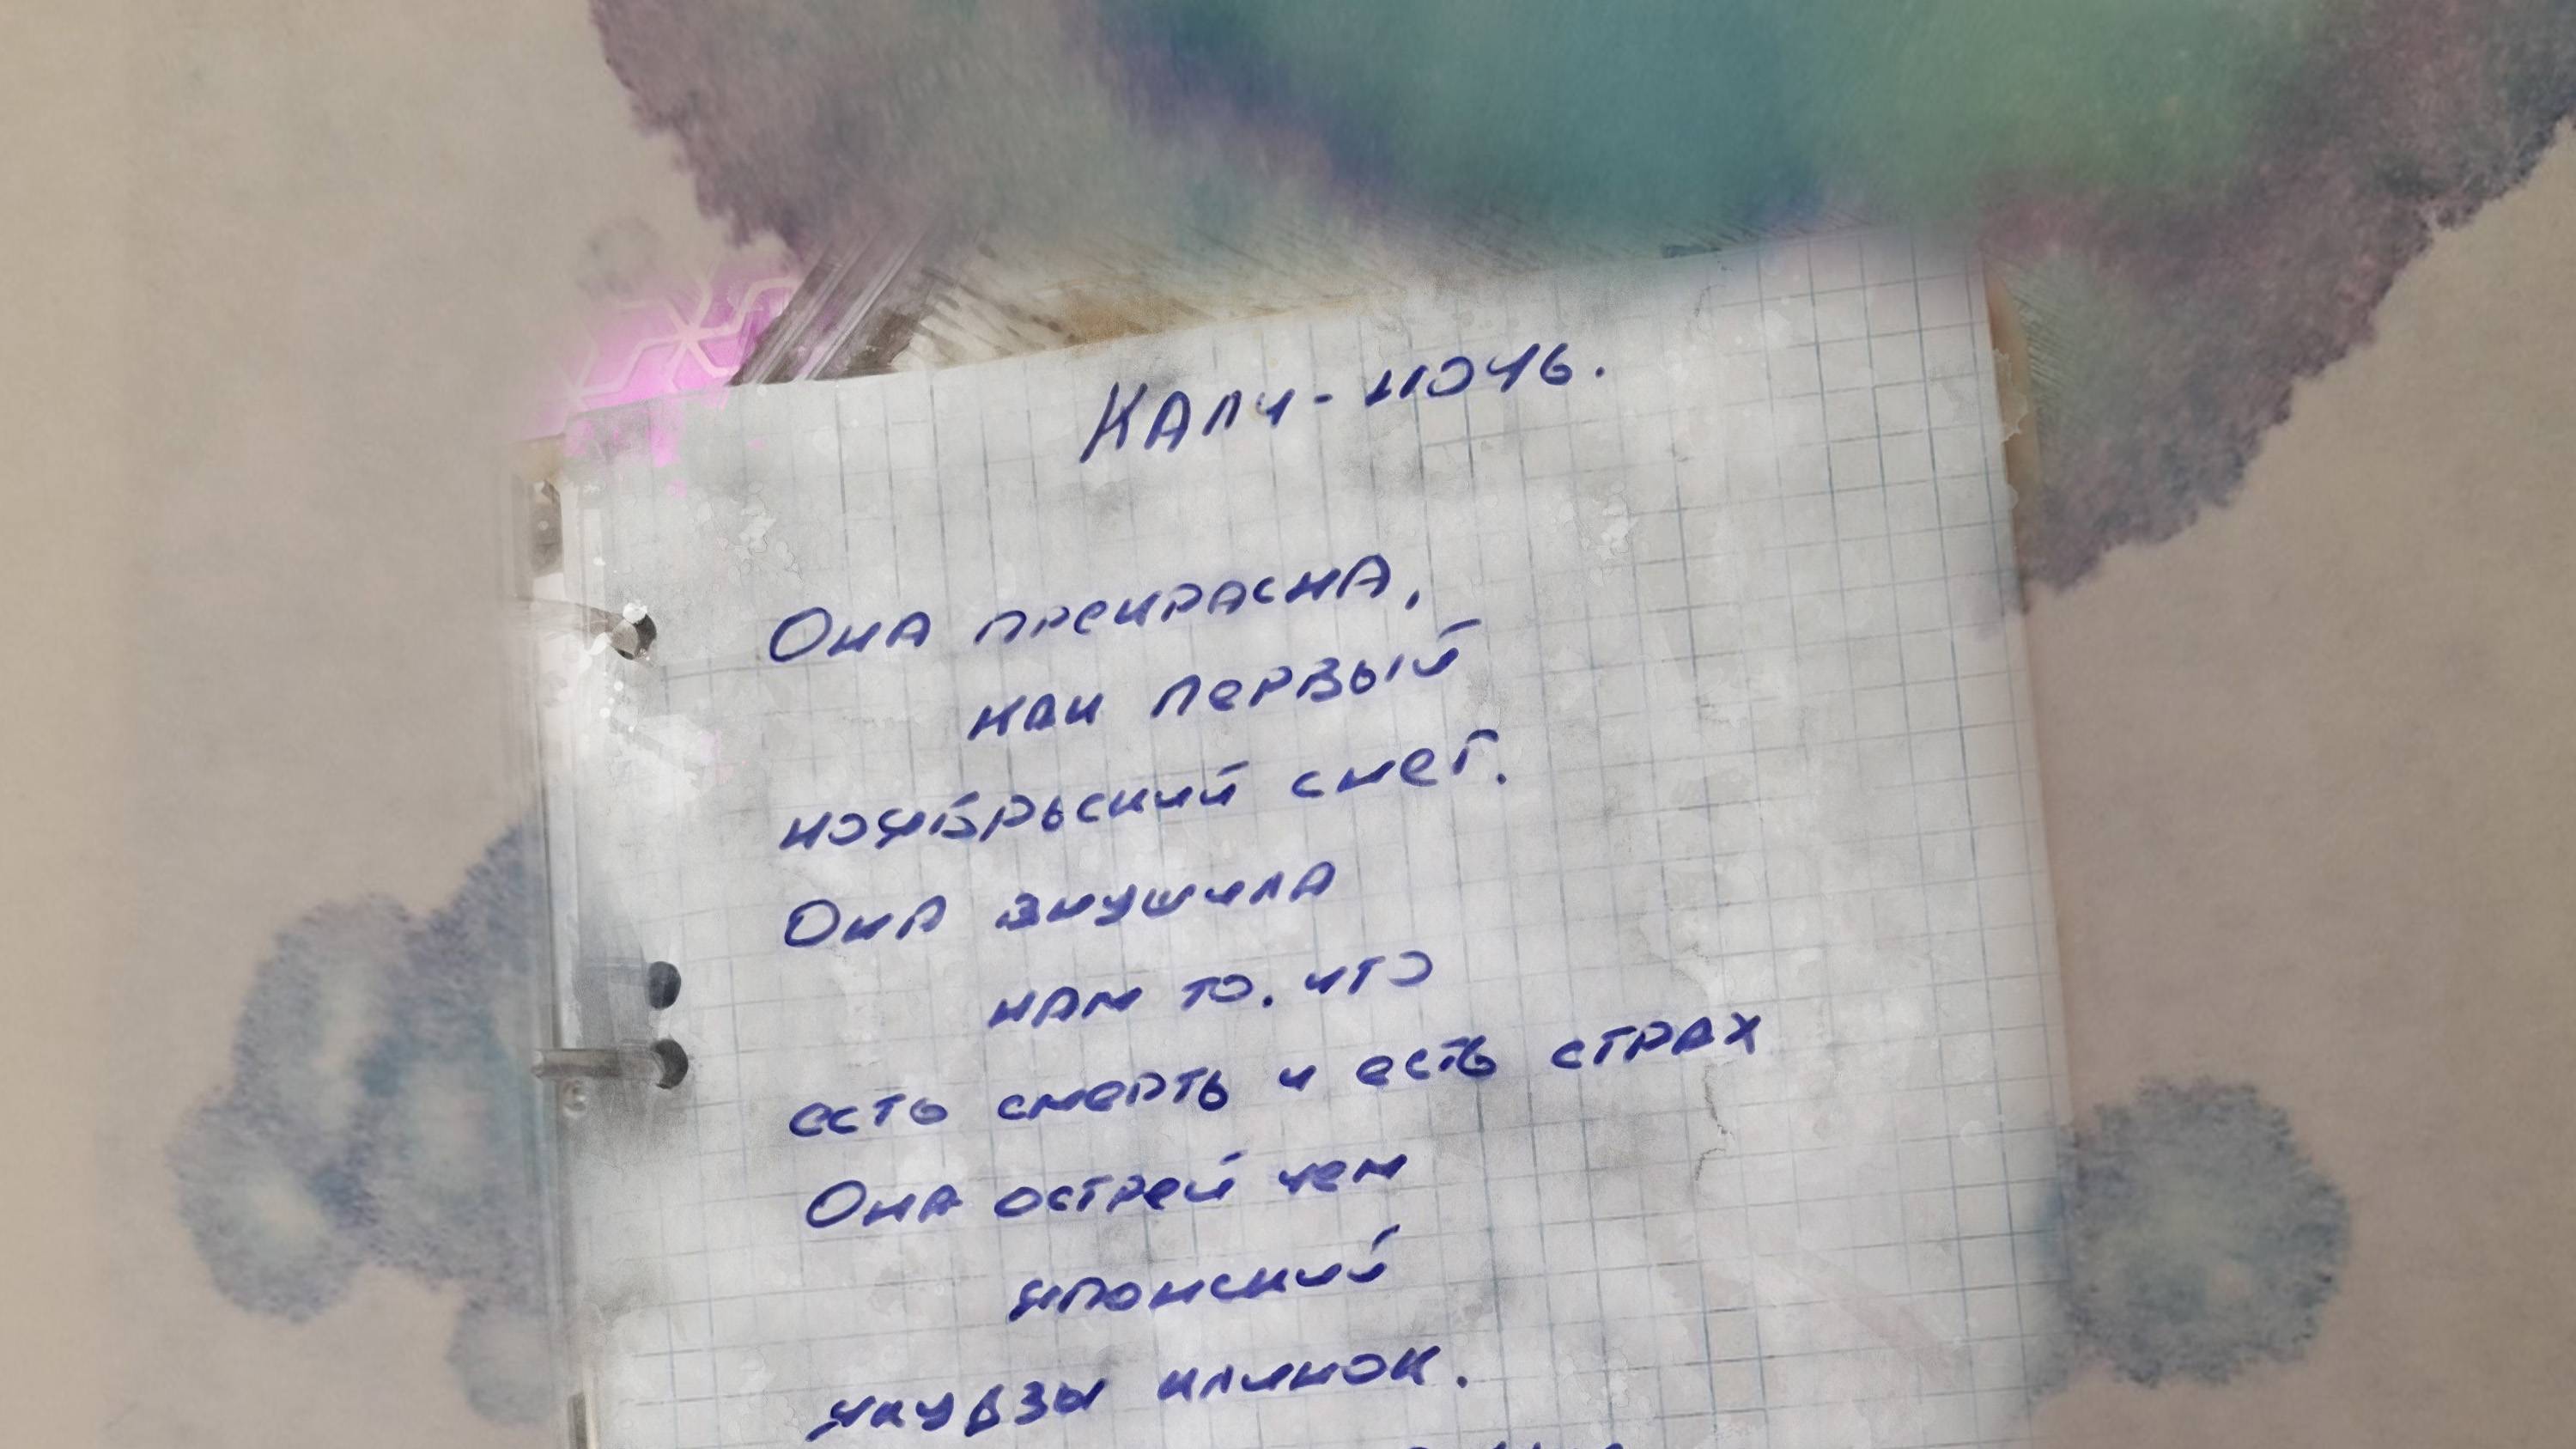 Кали-ночь.
Она прекрасна,
как первый
ноябрьский снег.
Она внушила
нам то. что
есть смерть и есть страх
Она острей чем
японский
якудзы клинок.